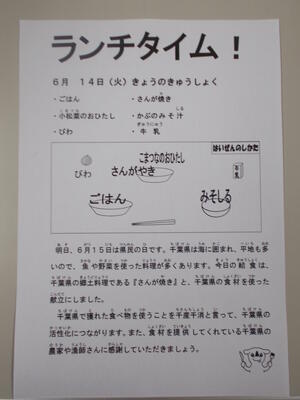 ランチタイム！
６月　１４日（火）きょうのきゅうしょく
・ごはん　・さんが焼き
・小松菜のおひたし　・かぶのみそ汁
・びわ　・牛乳
はいぜんのしかた
こまつなのおひたし
びわ
さんがやき
牛乳
ごはん
みそしる
明日、６月１５日は県民の日です。千葉県は海に囲まれ、平地も多
いので、魚や野菜を使った料理が多くあります。今日の給食は、
千葉県の郷土料理である『さんが焼き』と、千葉県の食材を使った
献立にしました。
千葉県で獲れた食べ物を使うことを千産千消と言って、千葉県の
活性化につながります。また、食材を提供してくれている千葉県の
農家や漁師さんに感謝していただきましょう。